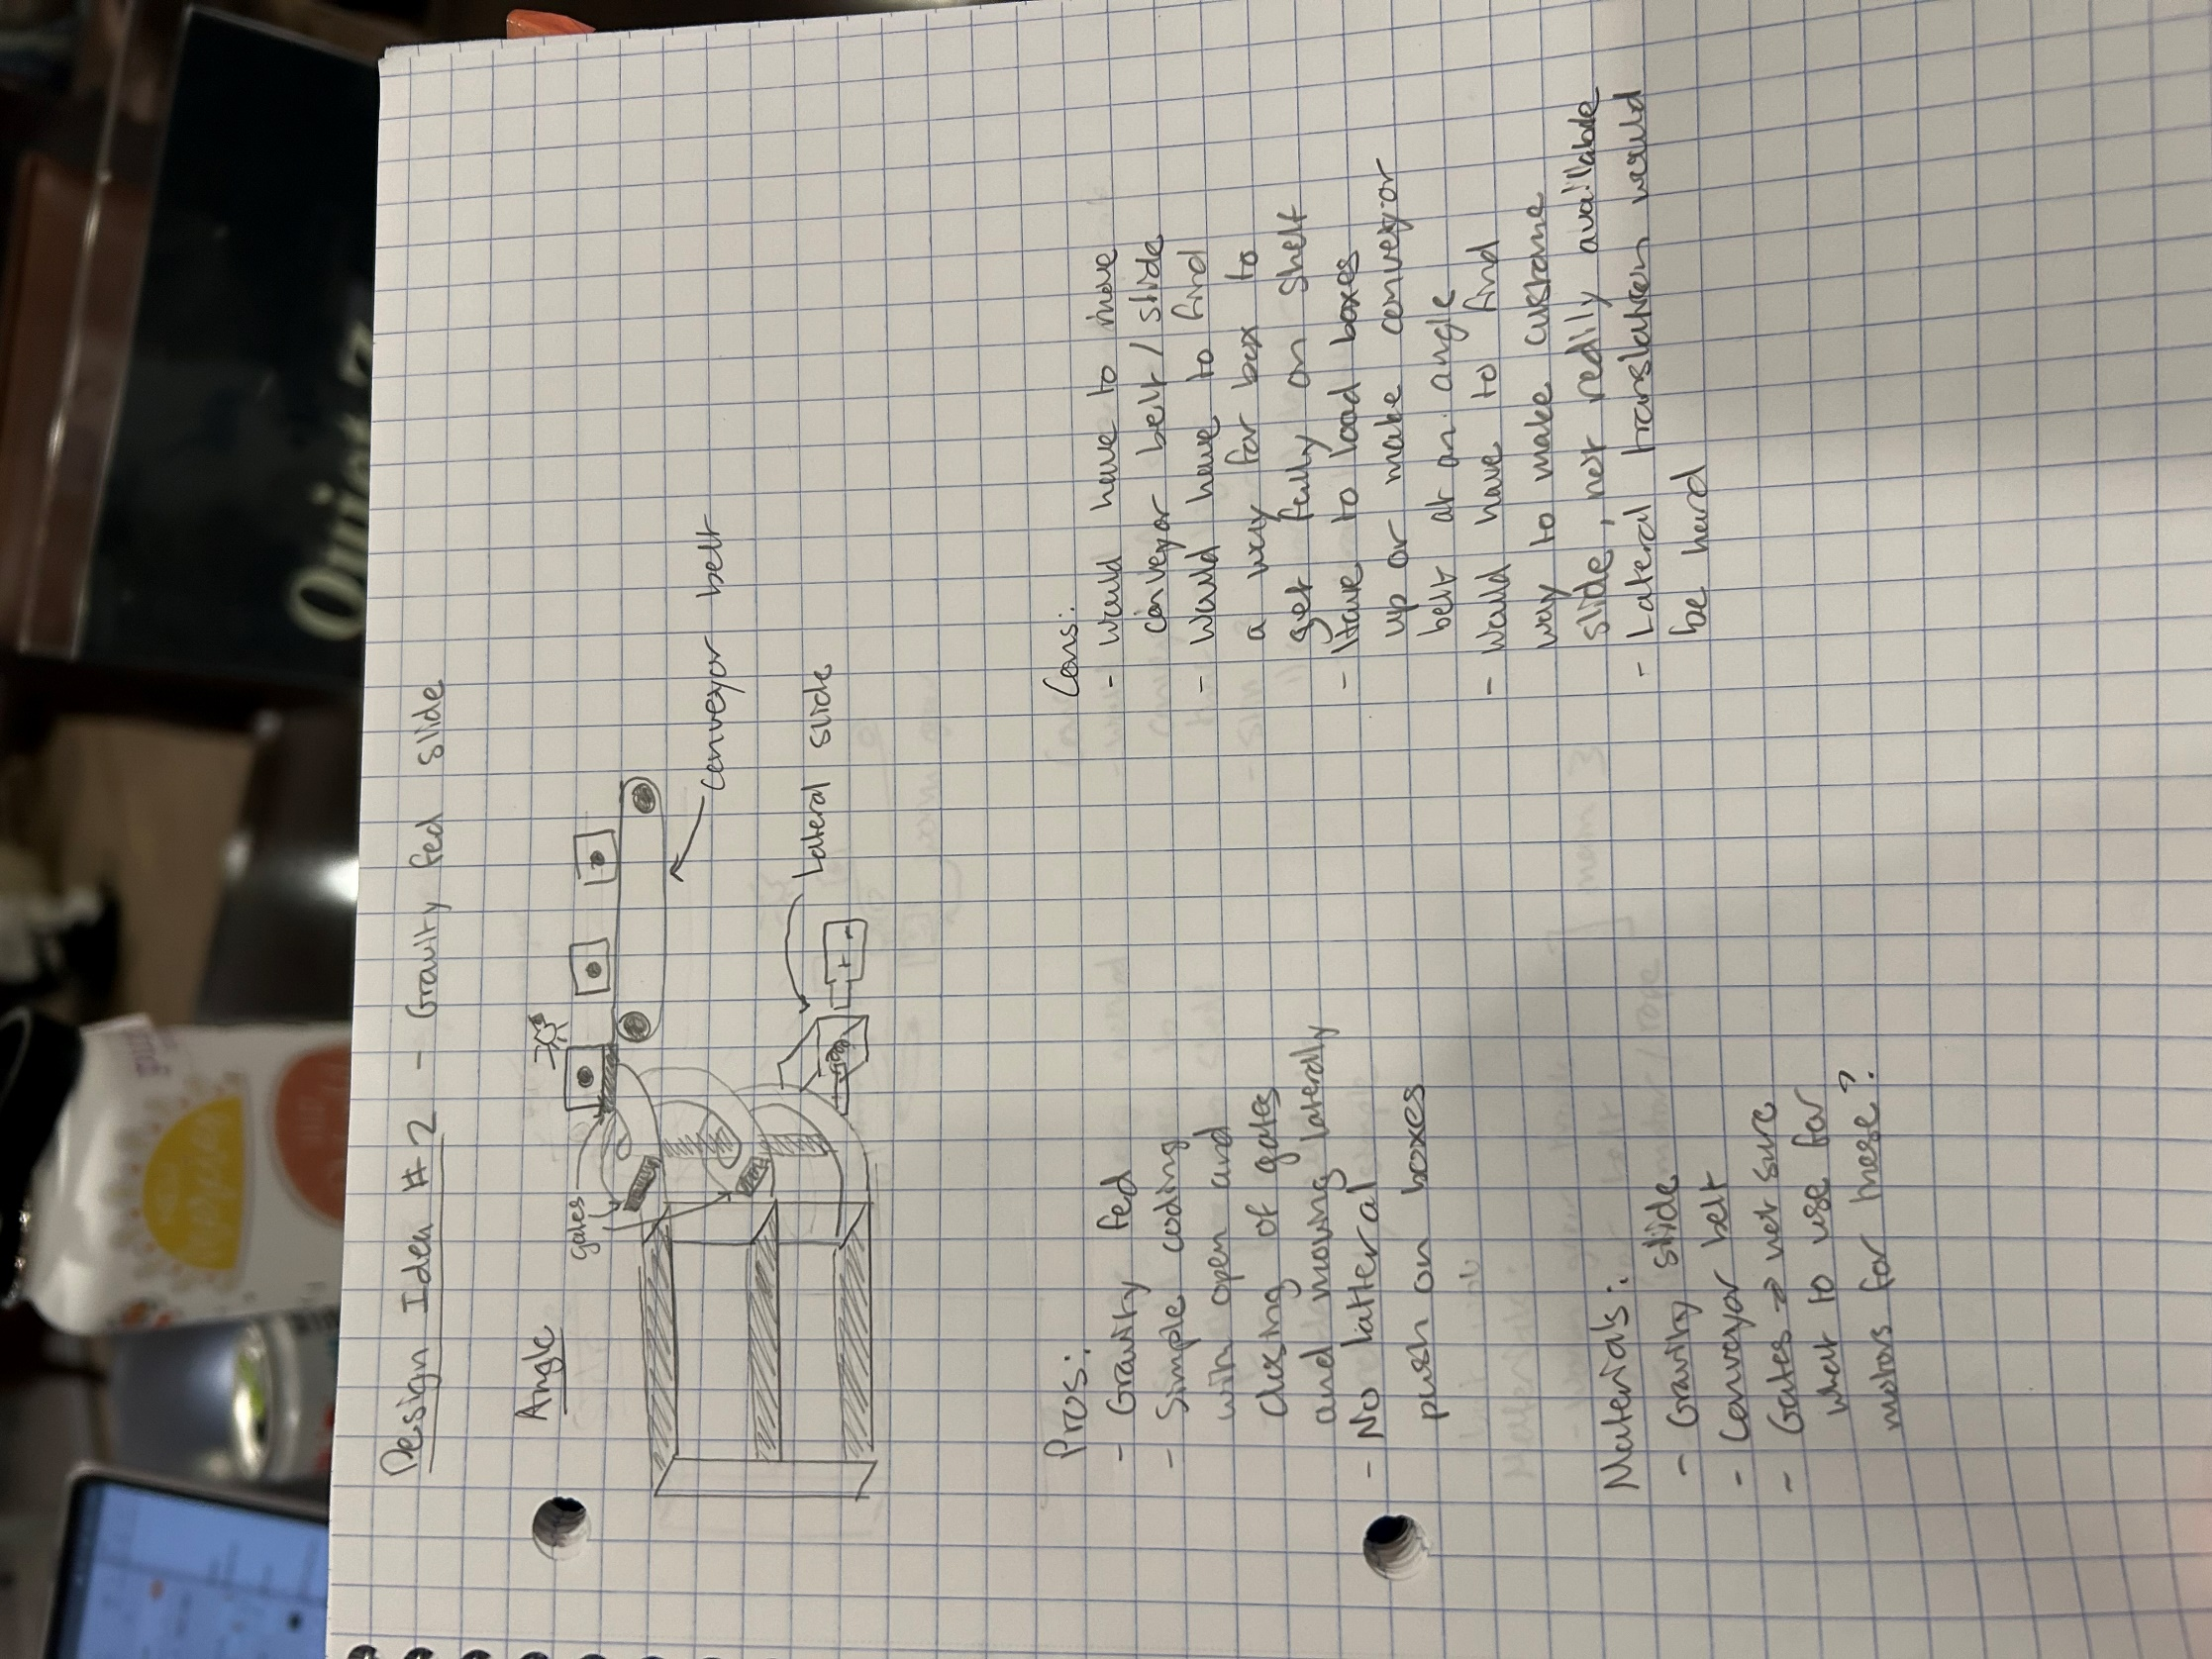 Design Idea #2 - Gravity fed slide
Angle
gates
conveyor belt
Lateral slide
Pros:
- Gravity fed
- Simple coding
with open and
closing of gates
and moving laterally
- No latteral
push on boxes
Cons:
- Would have to move
conveyor belt / slide
- Would have to find
a way for box to
get fully on shelf
- Have to load boxes
up or make conveyor
belt at an angle
- Would have to find
way to make custome
slide, not redily available
- Lateral translation would
be hard
Materials:
- Gravity slide
- Conveyor belt
- Gates → not sure
what to use for
motors for these?
Quiet Z